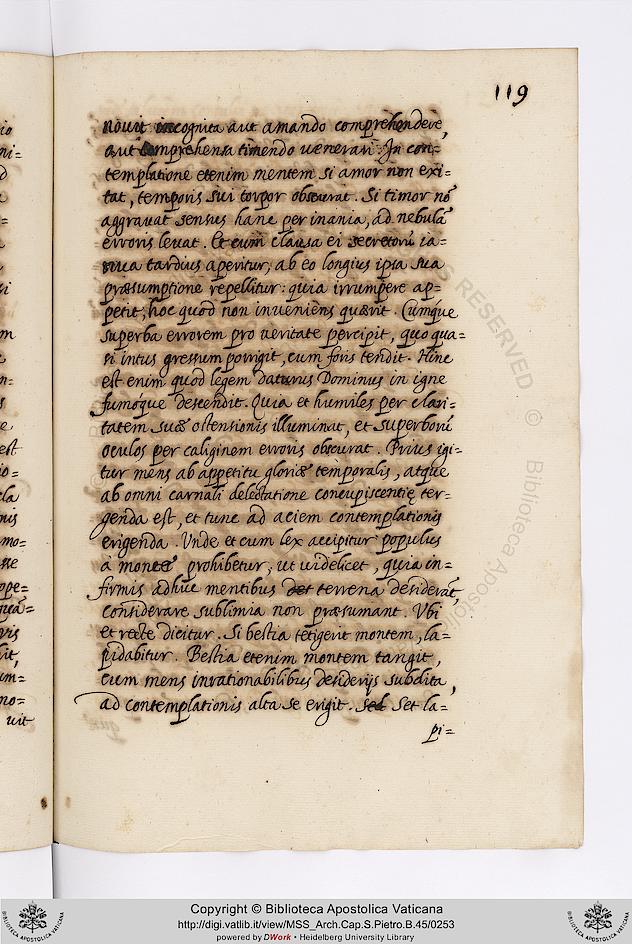 119
nouit incognita aut amando comprehendere,
aut comprehensa timendo uenerari. In con=
templatione etenim mentem si amor non exi=
tat, temporis sui torpor obscurat. Si timor nõ
aggrauat sensus hanc per inania, ad nebulã
erroris leuat. Et cum clausa ei secretorũ ia=
nua tardius aperitur, ab eo longius ipsa sua
præsumptione repellitur: quia irrumpere ap=
petit, hoc quod non inueniens quærit. Cumque
superba errorem pro ueritate percipit, quo qua=
si intus gressum porrigit, eum foris tendit. Hinc
est enim quod legem daturus Dominus in igne
fumoque descendit. Quia et humiles per clari=
tatem suæ ostensionis illuminat, et superborũ
oculos per caliginem erroris obscurat. Prius igi=
tur mens ab appetitu gloriæ temporalis, atque
ab omni carnali delectatione concupiscentię ter=
genda est, et tunc ad aciem contemplationis
erigenda. Unde et cum lex accipitur populus
à monte prohibetur, ut uidelicet, quia in=
firmis adhuc mentibus terrena desiderãt,
considerare sublimia non præsumant. Vbi
et recte dicitur. Si bestia tetigerit montem, la=
pidabitur. Bestia etenim montem tangit,
cum mens inrationabilibus desiderijs subdita,
ad contemplationis alta se erigit. Sed Set la=
pi=
uit
RIGHTS RESERVED © Biblioteca Apostolica
Copyright © Biblioteca Apostolica Vaticana
http://digi.vatlib.it/view/MSS_Arch.Cap.S.Pietro.B.45/0253
powered by DWork • Heidelberg University Library